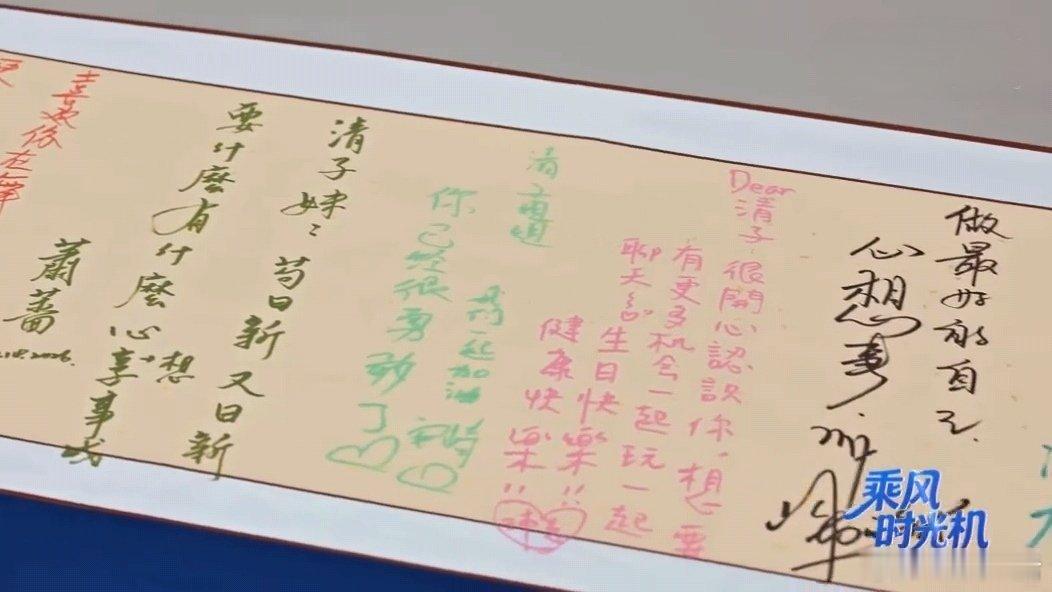 做最好的自己
心想事
Dear
清子,很開心認識你,想要
有更多機會一起玩一起
聊天
生日快樂!!
健康快樂!!
清子
你已經很勇敢了
一起加油
清子妹ミ 苟日新 又日新
要什麼有什麼 心想事成
蕭薔
2026.
喜欢你在
乘风
时光机